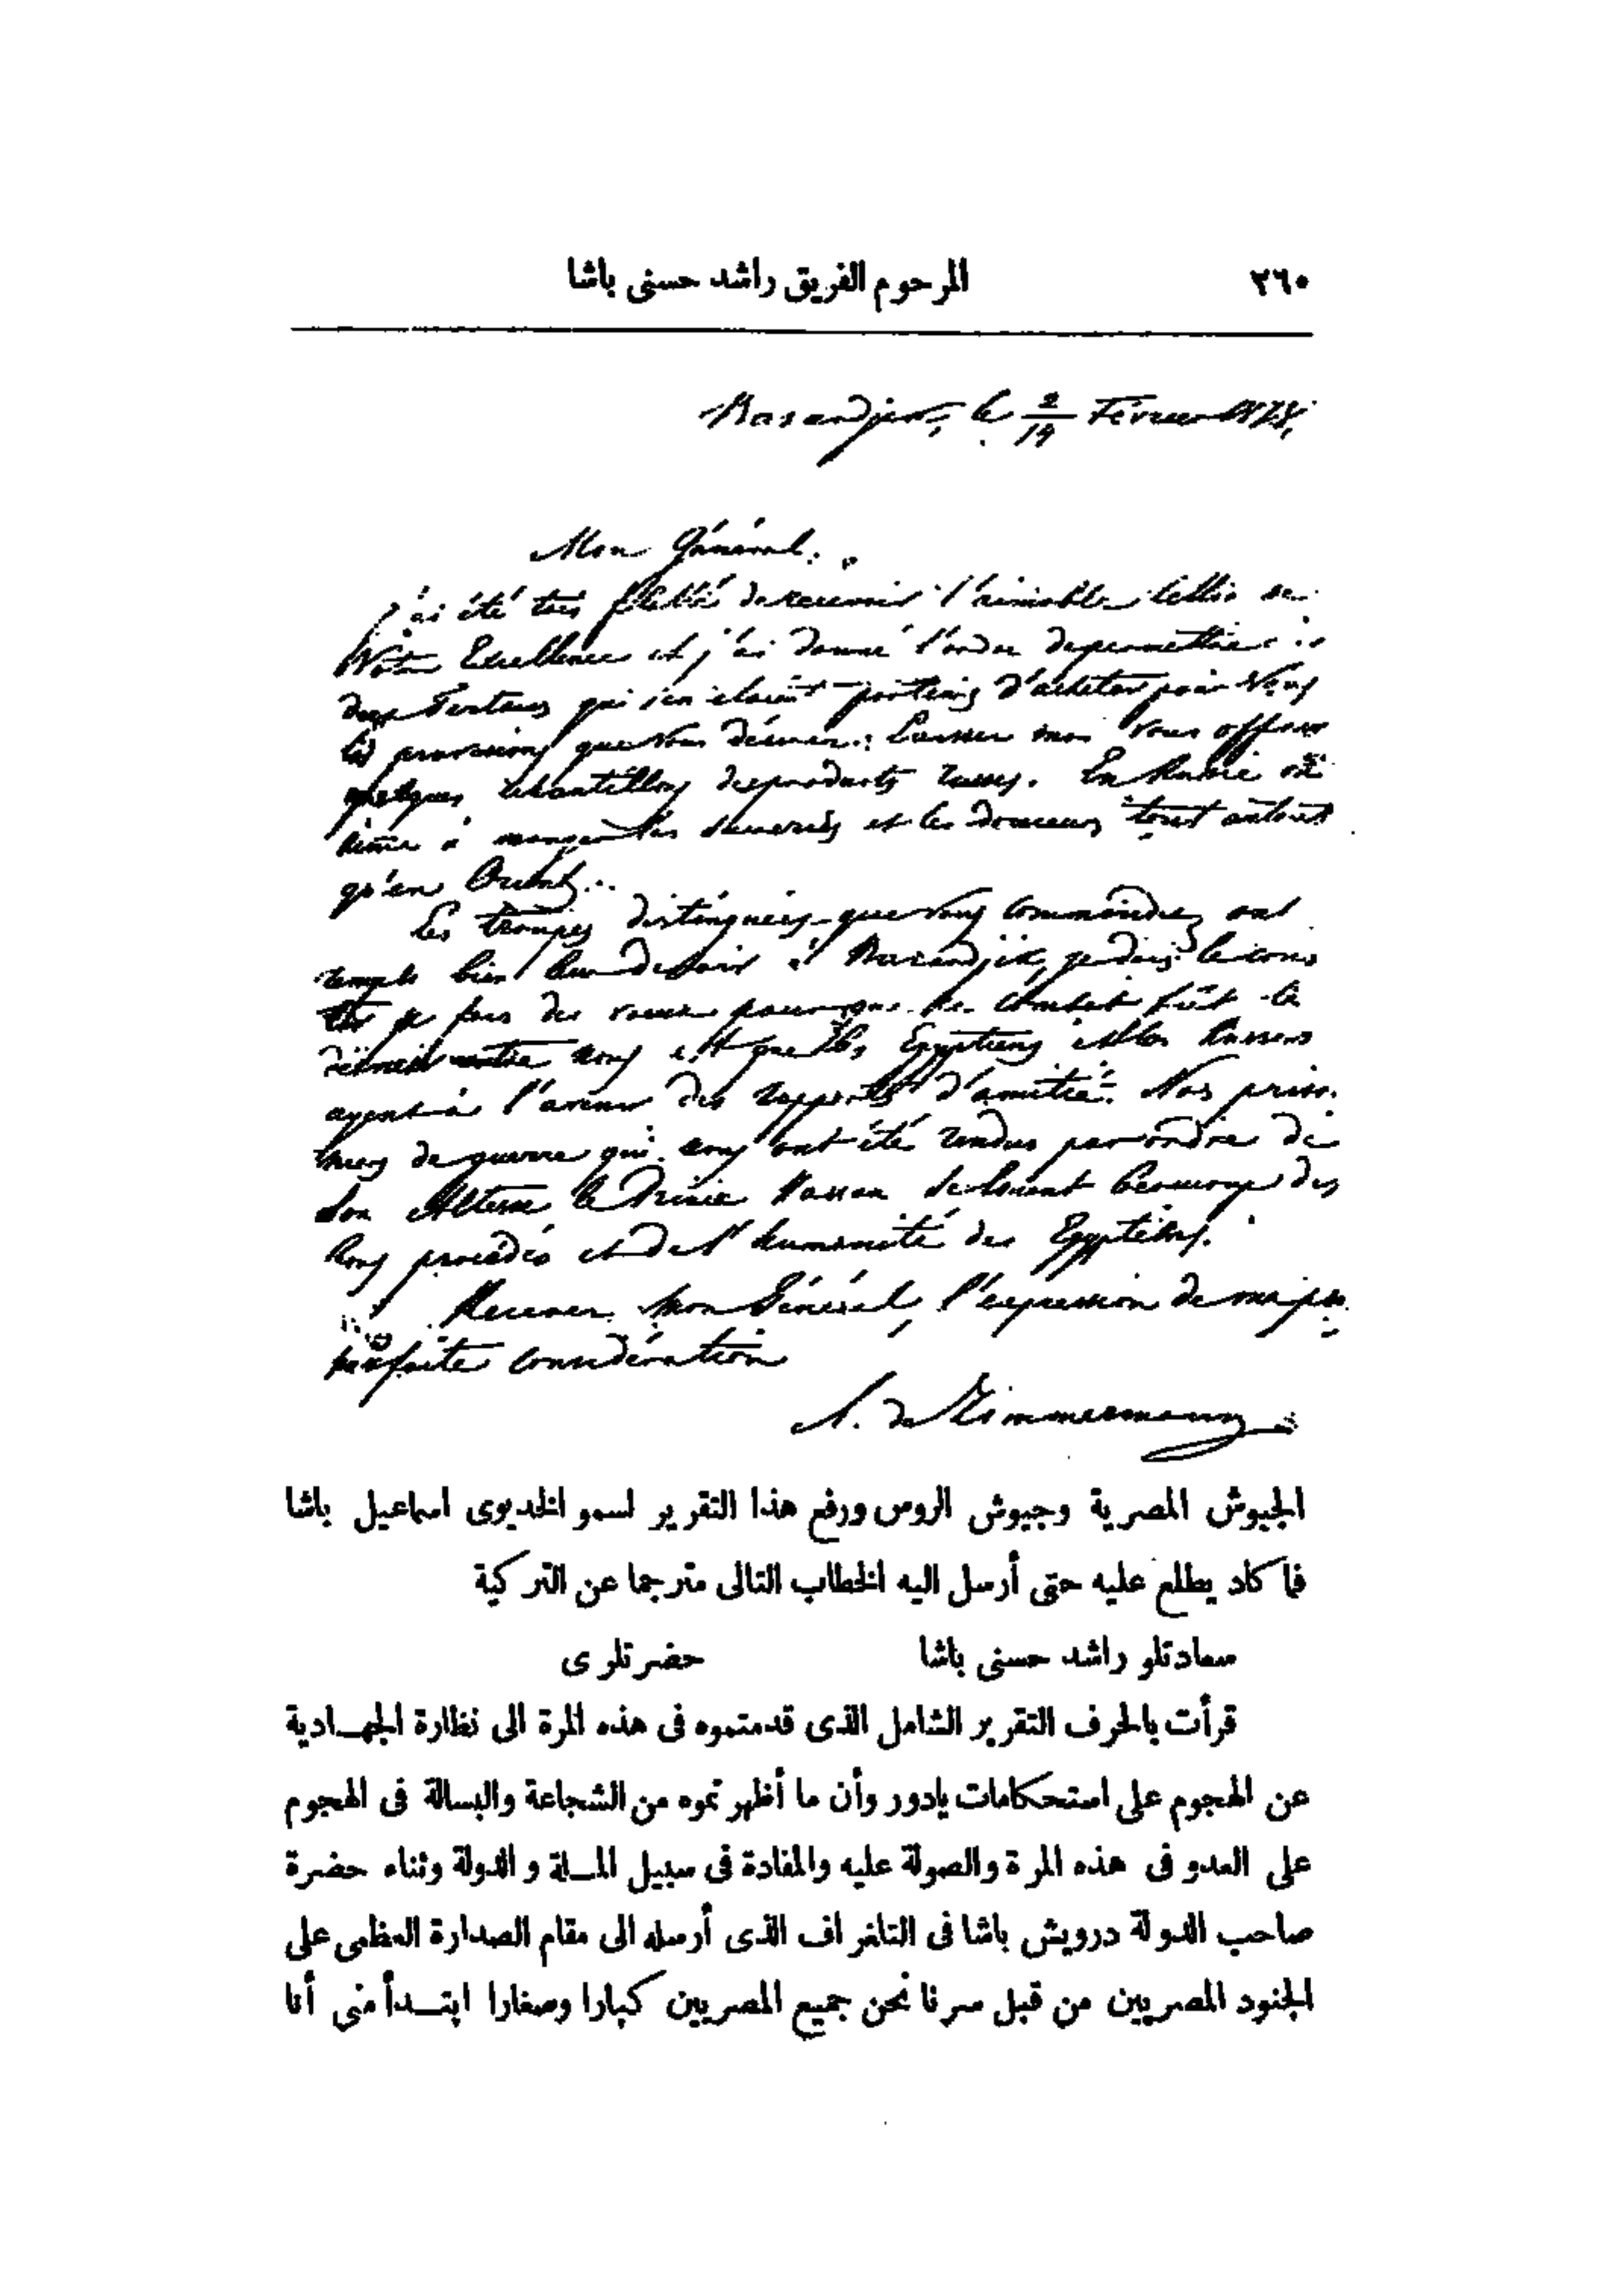 ٢٦٠
المرحوم الفريق راشد حسنى باشا
le 2/14 Février 1878
Mon Général.
J'ai été très flatté de recevoir l'aimable lettre de
Votre Excellence et j'ai donné l'ordre de permettre
qui s'en étaient d'acheter pour Vous
les provisions que Vous désirez. Laissez moi vous offrir
quelques échantillons de produits russes. En Russie on
aime à manger les sucreries et les douceurs tout autant
qu'en Orient..
Les troupes distinguées que Vous commandez ont
rempli bien leur devoir à Bazardjik, je dois le cons
tater je fais des voeux pour que ce combat fût le
dernier entre nous et que les Egyptiens et les Russes
ayent à l'avenir des rapports d'amitié. Nos prison
niers de guerre qui nous ont été rendus par ordre de
Son Altesse le Prince Hassan se louent beaucoup des
bons procédés et de l'humanité des Egyptiens.
Recevez, Mon Général, l'expression de ma
parfaite considération
A. de Zimmermann
الجيوش المصرية وجيوش الروس ورفع هذا التقرير لسمو الخديوى اسماعيل باشا
فما كاد يطلع عليه حتى أرسل اليه الخطاب التالى مترجما عن التركية
سعادتلو راشد حسنى باشا حضرتلرى
قرأت بالحرف التقرير الشامل الذى قدمتموه فى هذه المرة الى نظارة الجهادية
عن الهجوم على استحكامات يادور وأن ما أظهرتموه من الشجاعة والبسالة فى الهجوم
على العدو فى هذه المرة والصولة عليه والمفادة فى سبيل الملة والدولة وثناء حضرة
صاحب الدولة درويش باشا فى التلغراف الذى أرسله الى مقام الصدارة العظمى على
الجنود المصريين من قبل سرنا نحن جميع المصريين كبارا وصغارا ابتدأ منى أنا